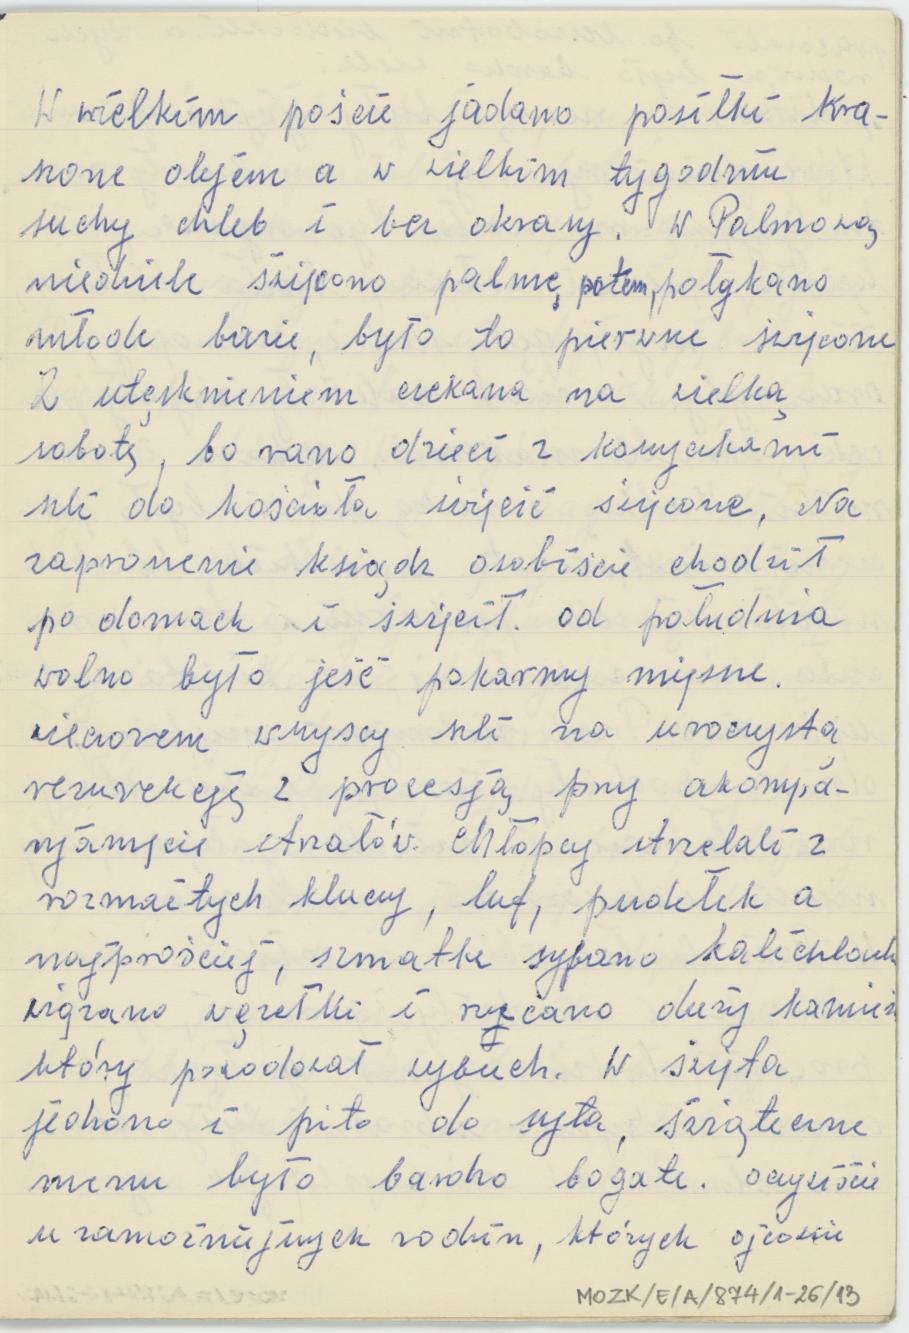 W wielkim poście jadano posiłki kra-
szone olejem a w wielkim tygodniu
suchy chleb i bez okrasy. W Palmową
niedziele święcono palmę, potem połykano
młode bazie, było to pierwsze święcone
Z utęsknieniem czekana na wielką
sobotę, bo rano dzieci z koszyczkami
szli do kościoła święcić święcone, Na
zaproszenie ksiądz osobiście chodził
po domach i święcił. od południa
wolno było jeść pokarmy mięsne.
wieczorem wszyscy szli na uroczystą
rezurekcję z procesją, przy akompa-
njamęcie strzałów. Chłopcy strzelali z
rozmaitych kluczy, luf, pudełek a
najprościej, szmatke sypano kalichlorku
wiązano węzełki i rzucano duży kamień
który powodował wybuch. W święta
jedzono i pito do syta, świąteczne
menu było bardzo bogate. oczywiście
u zamożniejszych rodzin, których ojcowie
MOZK/E/A/874/1-26/13